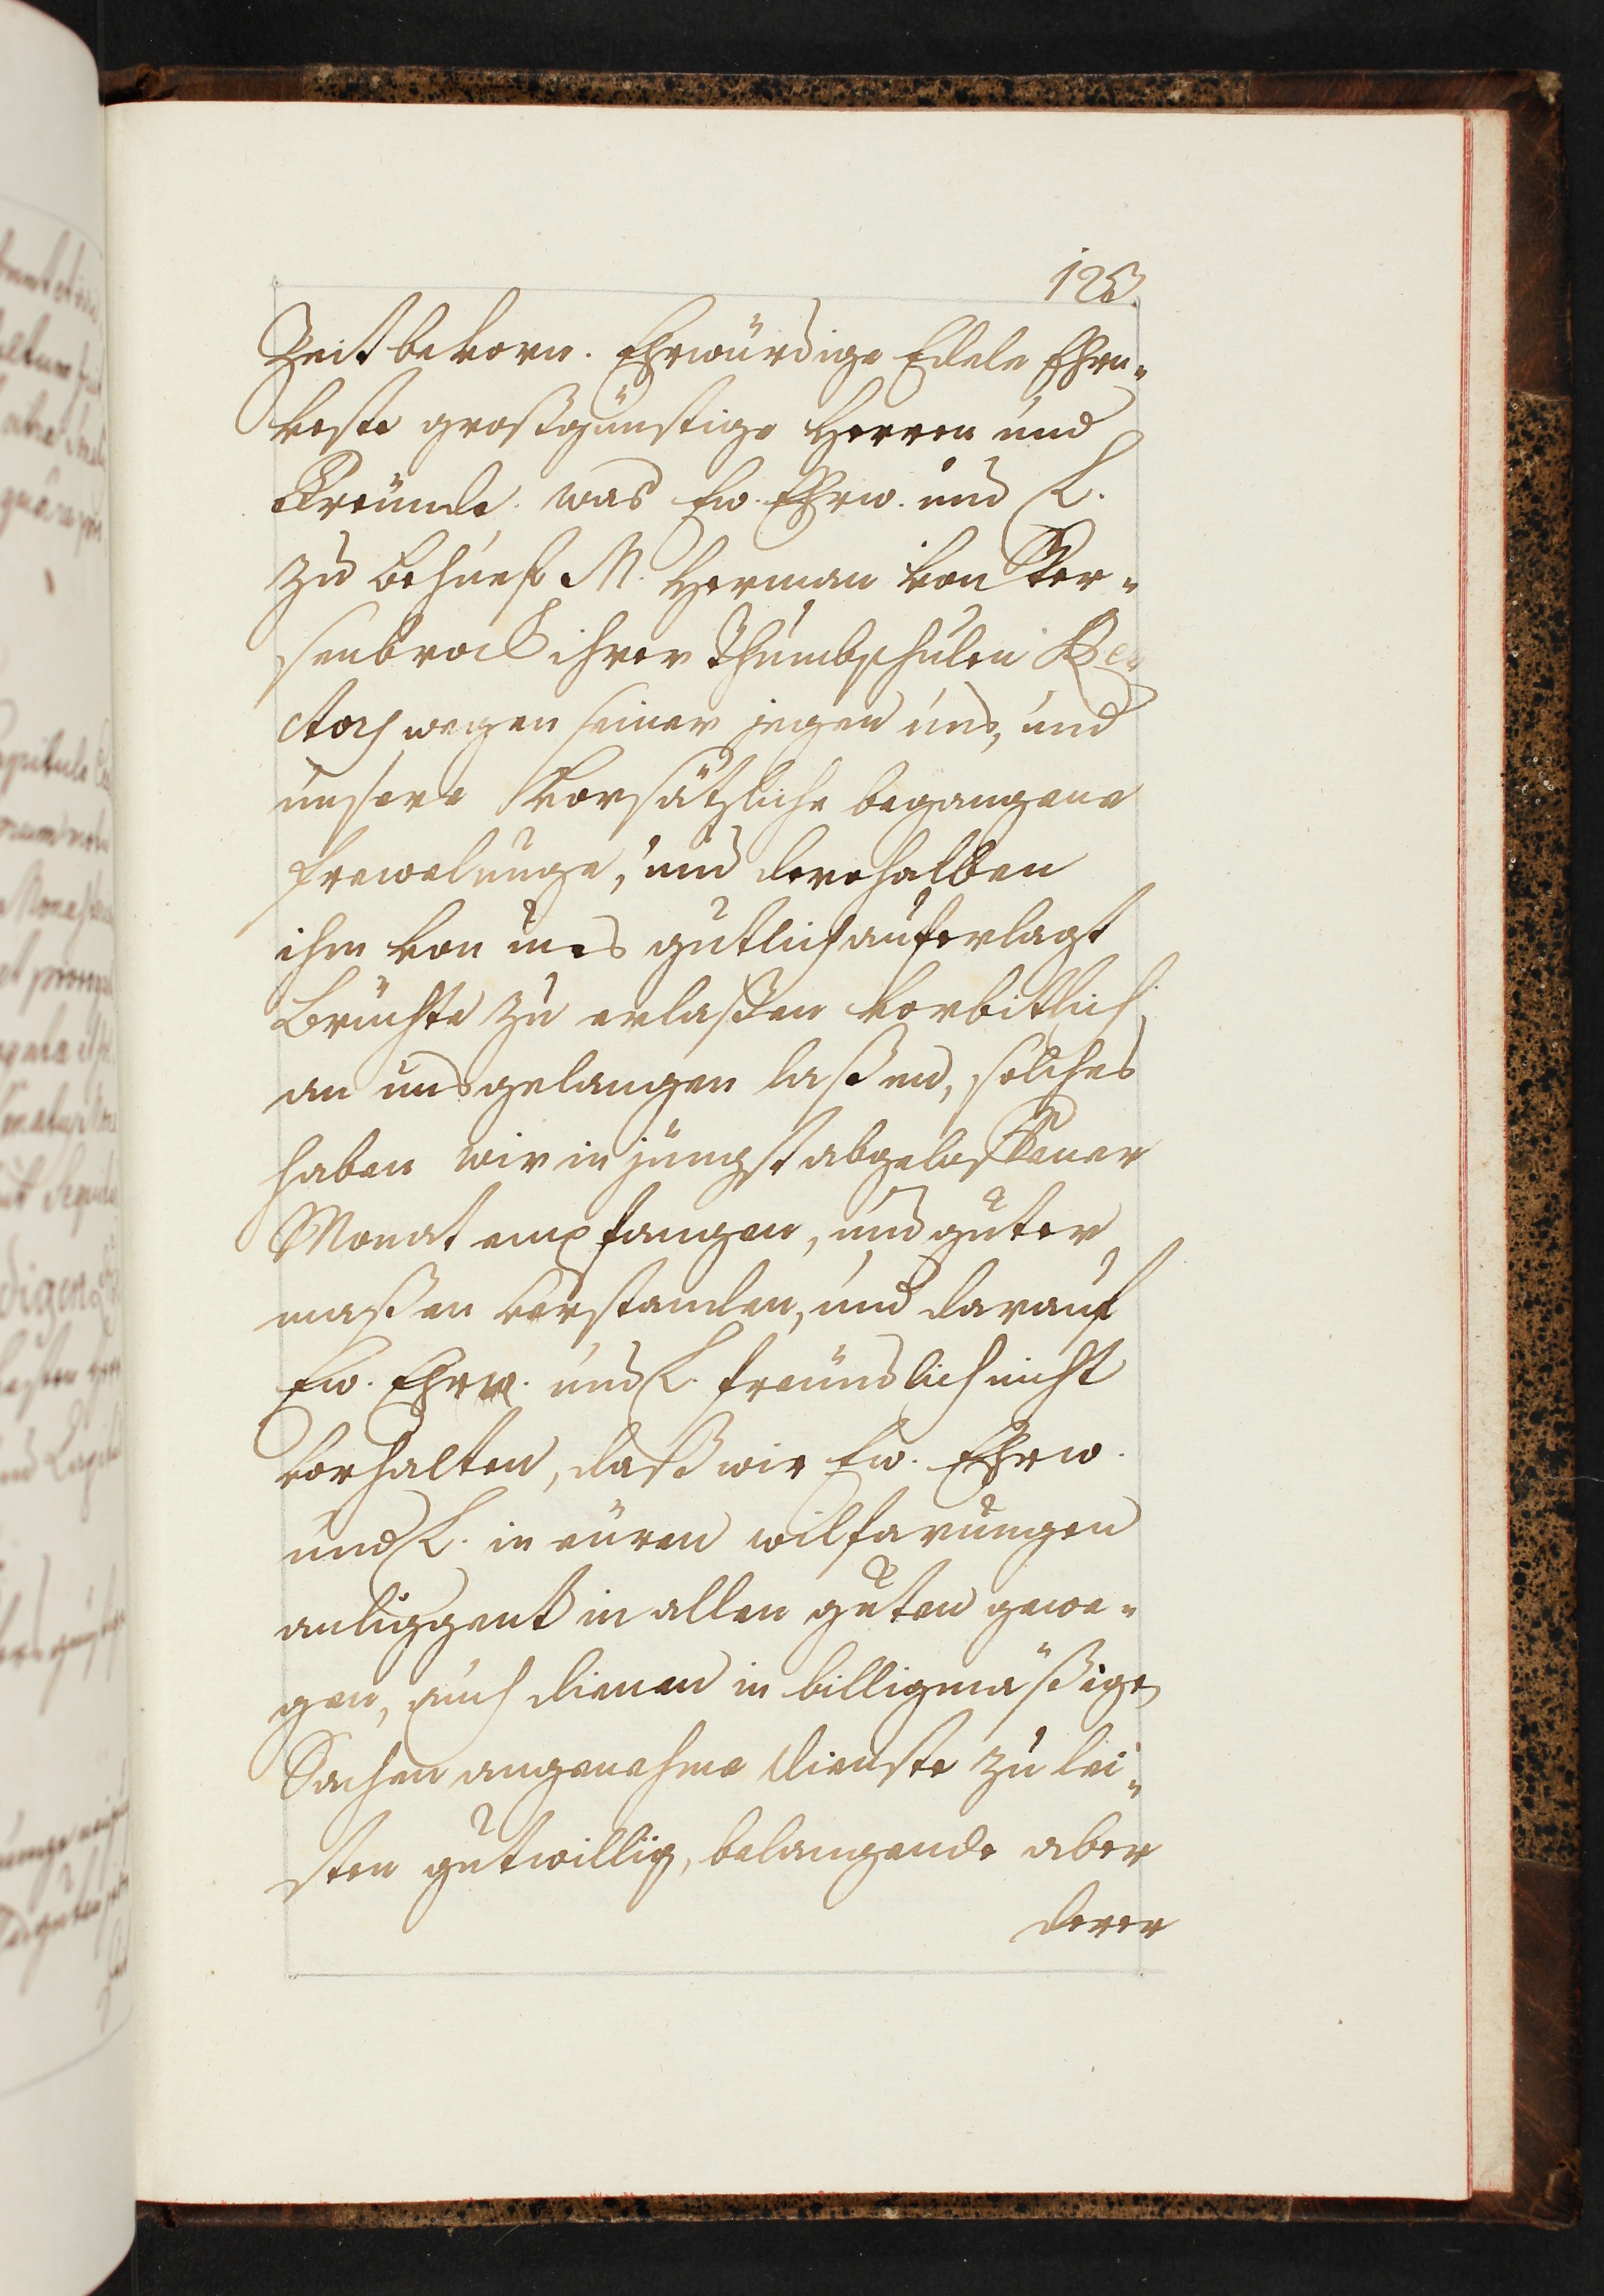 125.
Zeit bevorn. Ehrwürdige Edele Ehrn-
veste großgünstige Herren und
Freünde. was Ew. Ehrw. und L.
zu behuef M. Herman von Ker-
senbrock ihrer Thumbschulen Re-
ctorn wegen seiner jegen uns, und
unsere Vorsätzliche begangene
frewelunge, und derohalben
ihm von uns gutlich auferlagt
Brüchte zu erlaßen vorbitlich
an uns gelangen laßen, solches
haben wir in jüngst abgelaßener
Monat empfangen, und guter
maßen verstanden, und darauf
Ew. Ehrw. und L. freündlich nicht
vorhalten, daß wir Ew. Ehrw.
und L. in euren wilfarungen
anliggent in allen guten gewe-
gen, auch dienen in billigmäßige
Sachen angenehme dienste zu lei-
sten gutwillig, belangende aber
derer